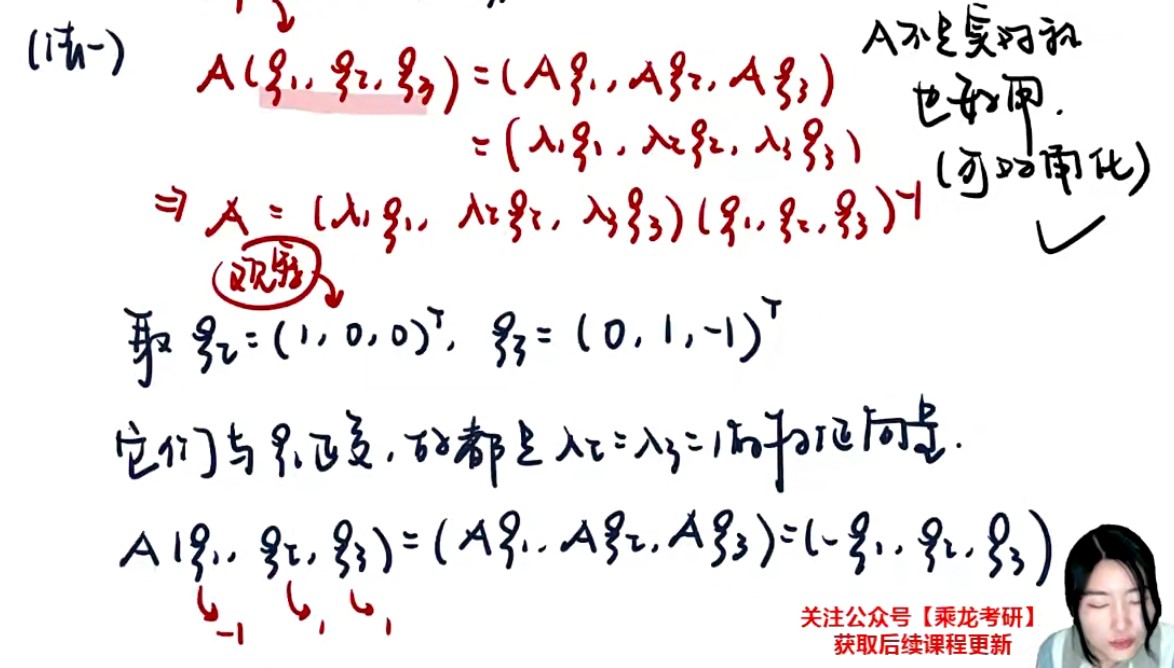 (法一)
A(ξ₁, ξ₂, ξ₃) = (Aξ₁, Aξ₂, Aξ₃)
= (λ₁ξ₁, λ₂ξ₂, λ₃ξ₃)
⇒ A = (λ₁ξ₁, λ₂ξ₂, λ₃ξ₃)(ξ₁, ξ₂, ξ₃)⁻¹
A不是实对称
也能用.
(可对角化)
✓
(观察)
取 ξ₂ = (1, 0, 0)ᵀ, ξ₃ = (0, 1, -1)ᵀ
它们与ξ₁正交, 故都是λ₂=λ₃=1的特征向量.
A(ξ₁, ξ₂, ξ₃) = (Aξ₁, Aξ₂, Aξ₃) = (-ξ₁, ξ₂, ξ₃)
-1 1 1
关注公众号【乘龙考研】
获取后续课程更新